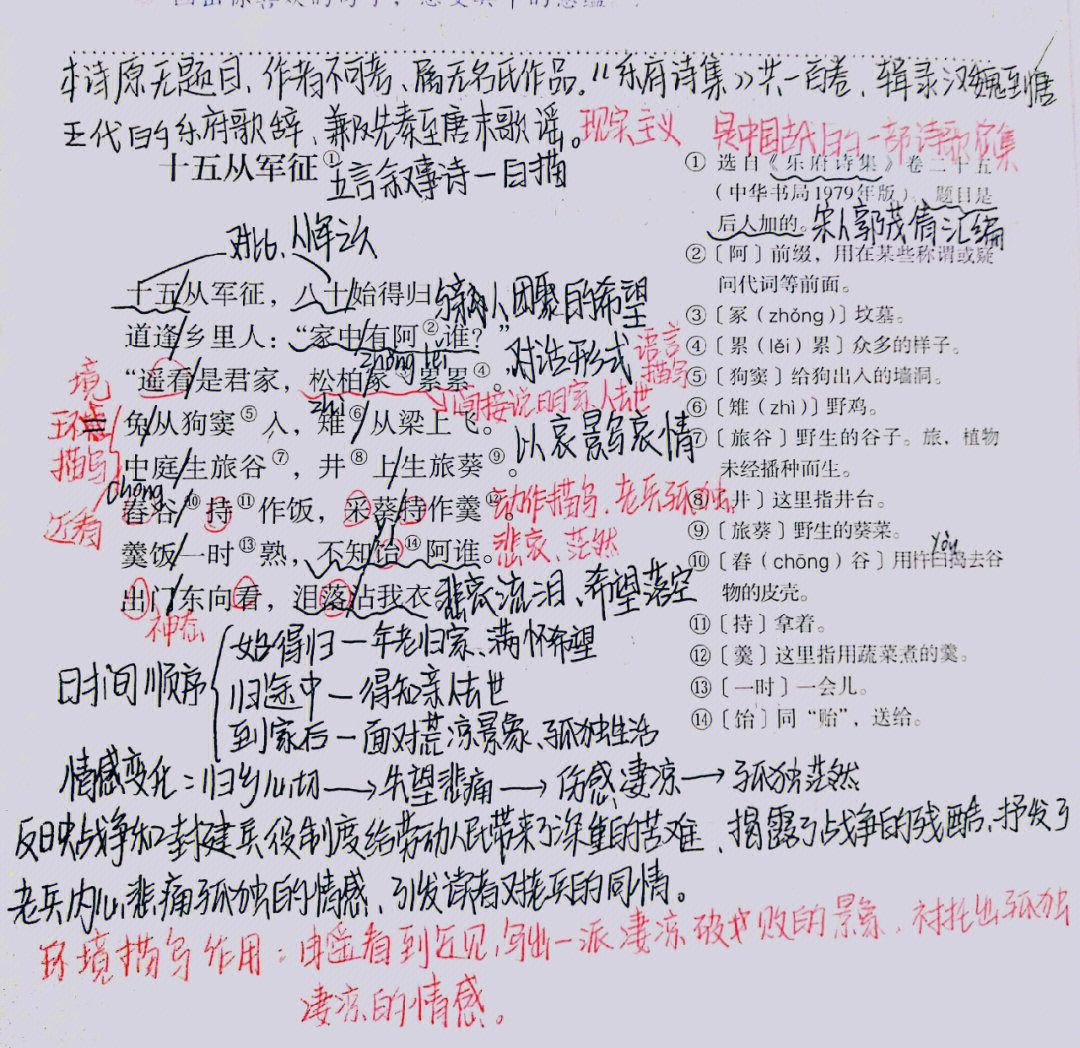 本诗原无题目、作者不可考、属无名氏作品。《乐府诗集》共一百卷、辑录汉魏到唐
五代的乐府歌辞、兼及先秦至唐末歌谣。现实主义 是中国古代的一部诗歌总集
十五从军征①
五言叙事诗—白描
对比、从军之久
十五从军征，八十始得归
与亲人团聚的希望
道逢乡里人：“家中有阿②谁？”
对话形式 语言描写
zhǒng lěi
“遥看是君家，松柏冢③累累④。
间接说明家人去世
环境描写
近看
zhì
兔从狗窦⑤入，雉⑥从梁上飞。
以哀景写哀情
中庭生旅谷⑦，井⑧上生旅葵⑨。
chōng
舂谷⑩持⑪作饭，采葵持作羹⑫。
动作描写、老兵孤独、
悲哀、茫然
yí
羹饭一时⑬熟，不知饴⑭阿谁。
出门东向看，泪落沾我衣
悲哀流泪、希望落空
神态
① 选自《乐府诗集》卷二十五
（中华书局1979年版）。题目是
后人加的。宋人郭茂倩汇编
②〔阿〕前缀，用在某些称谓或疑
问代词等前面。
③〔冢（zhǒng）〕坟墓。
④〔累（lěi）累〕众多的样子。
⑤〔狗窦〕给狗出入的墙洞。
⑥〔雉（zhì）〕野鸡。
⑦〔旅谷〕野生的谷子。旅，植物
未经播种而生。
⑧〔井〕这里指井台。
⑨〔旅葵〕野生的葵菜。
⑩〔舂（chōng）谷〕用杵臼捣去谷
物的皮壳。
⑪〔持〕拿着。
⑫〔羹〕这里指用蔬菜煮的羹。
⑬〔一时〕一会儿。
⑭〔饴〕同“贻”，送给。
时间顺序
始得归—年老归家、满怀希望
归途中—得知亲人去世
到家后—面对荒凉景象、孤独生活
情感变化：归乡心切→失望悲痛→伤感凄凉→孤独茫然
反映战争和封建兵役制度给劳动人民带来了深重的苦难、揭露了战争的残酷、抒发了
老兵内心悲痛孤独的情感、引发读者对老兵的同情。
环境描写作用：由遥看到近见，写出一派凄凉破败的景象、衬托出孤独
凄凉的情感。